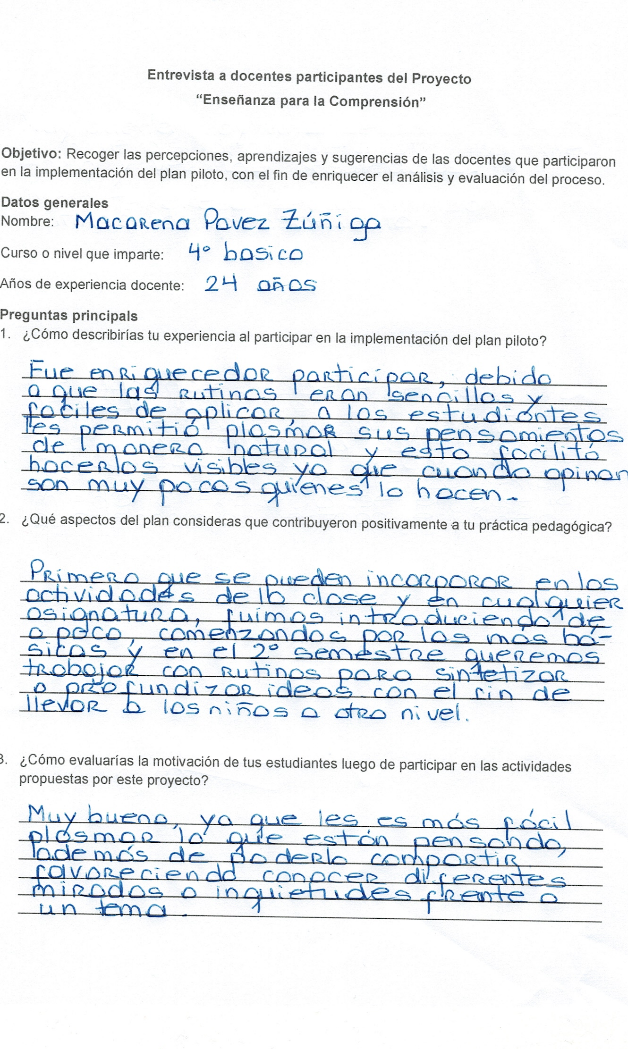 Entrevista a docentes participantes del Proyecto
“Enseñanza para la Comprensión”
Objetivo: Recoger las percepciones, aprendizajes y sugerencias de las docentes que participaron
en la implementación del plan piloto, con el fin de enriquecer el análisis y evaluación del proceso.
Datos generales
Nombre: Macarena Pavez Zúñiga
Curso o nivel que imparte: 4º basico
Años de experiencia docente: 24 años
Preguntas principals
1. ¿Cómo describirías tu experiencia al participar en la implementación del plan piloto?
Fue enriquecedor participar, debido
a que las rutinas eran sencillas y
faciles de aplicar, a los estudiantes
les permitió plasmar sus pensamientos
de manera natural y esto facilitó
hacerlos visibles ya que cuando opinan
son muy pocos quienes lo hacen.
2. ¿Qué aspectos del plan consideras que contribuyeron positivamente a tu práctica pedagógica?
Primero que se pueden incorporar en las
actividades de la clase y en cualquier
asignatura, fuimos introduciendo de
a poco, comenzandos por las más bá-
sicas y en el 2º semestre queremos
trabajar con rutinas para sintetizar
o profundizar ideas con el fin de
llevar a los niños a otro nivel.
3. ¿Cómo evaluarías la motivación de tus estudiantes luego de participar en las actividades
propuestas por este proyecto?
Muy buena, ya que les es más fácil
plasmar lo que están pensando,
ademós de poderlo compartir
favoreciendo conocer diferentes
miradas o inquietudes frente a
un tema.